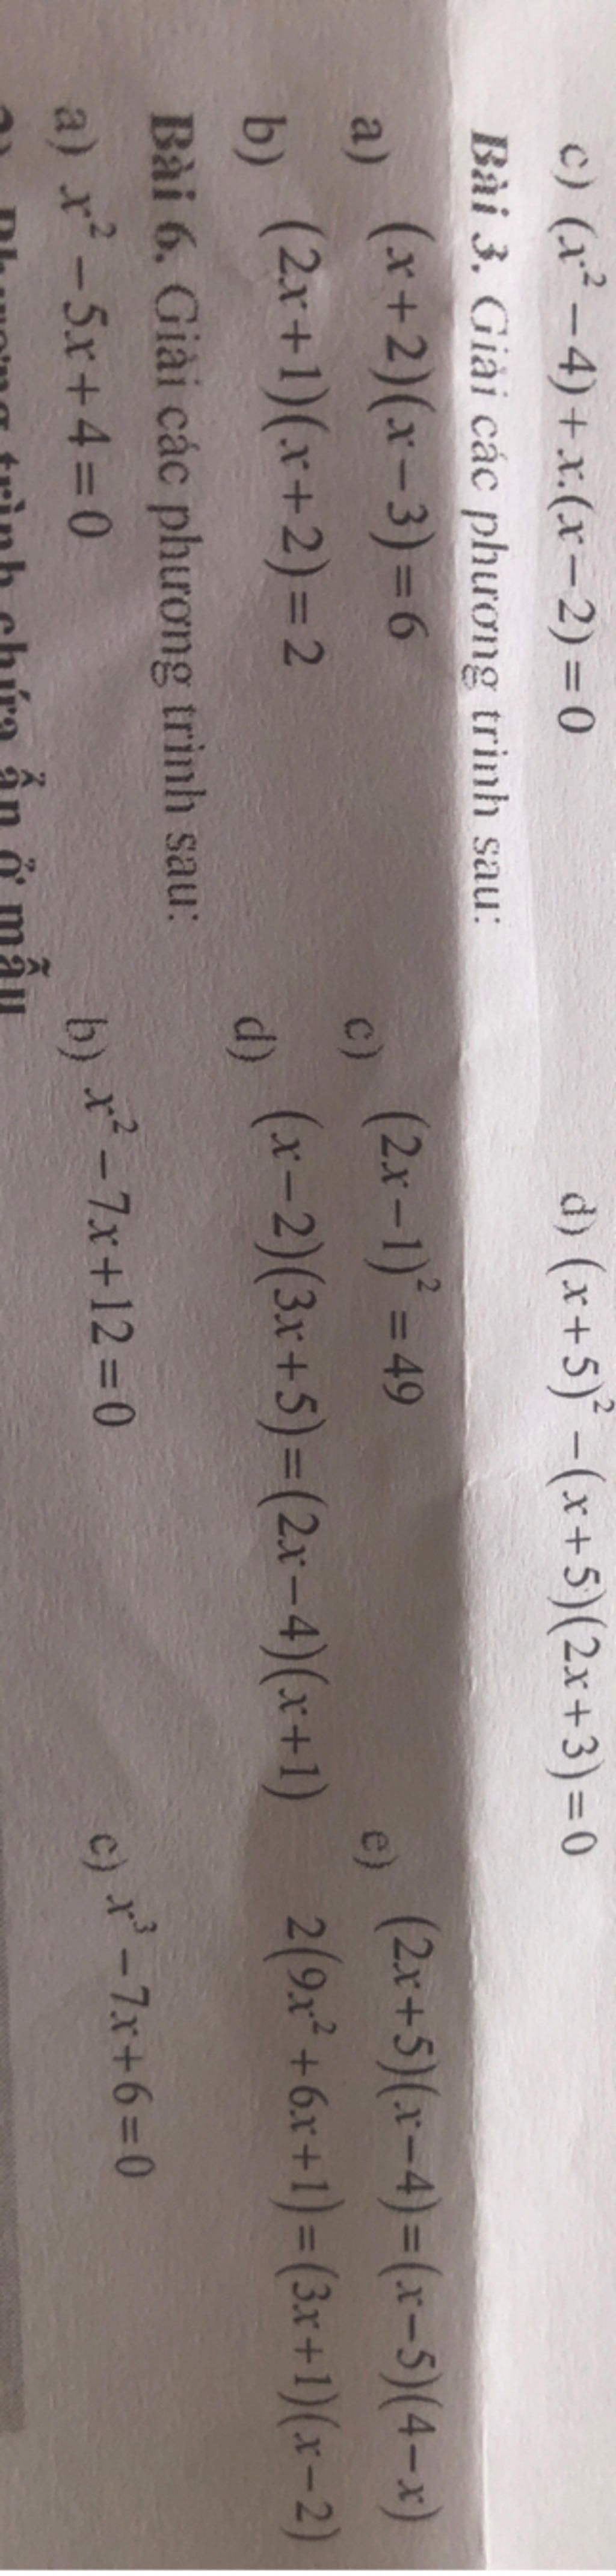 c) (x² − 4) + x.(x − 2) = 0 d) (x + 5)² − (x + 5)(2x + 3) = 0
Bài 3. Giải các phương trình sau:
a) (x + 2)(x − 3) = 6 c) (2x − 1)² = 49 e) (2x + 5)(x − 4) = (x − 5)(4 − x)
b) (2x + 1)(x + 2) = 2 d) (x − 2)(3x + 5) = (2x − 4)(x + 1) 2(9x² + 6x + 1) = (3x + 1)(x − 2)
Bài 6. Giải các phương trình sau:
a) x² − 5x + 4 = 0 b) x² − 7x + 12 = 0 c) x³ − 7x + 6 = 0
Phương trình chứa ẩn ở mẫu